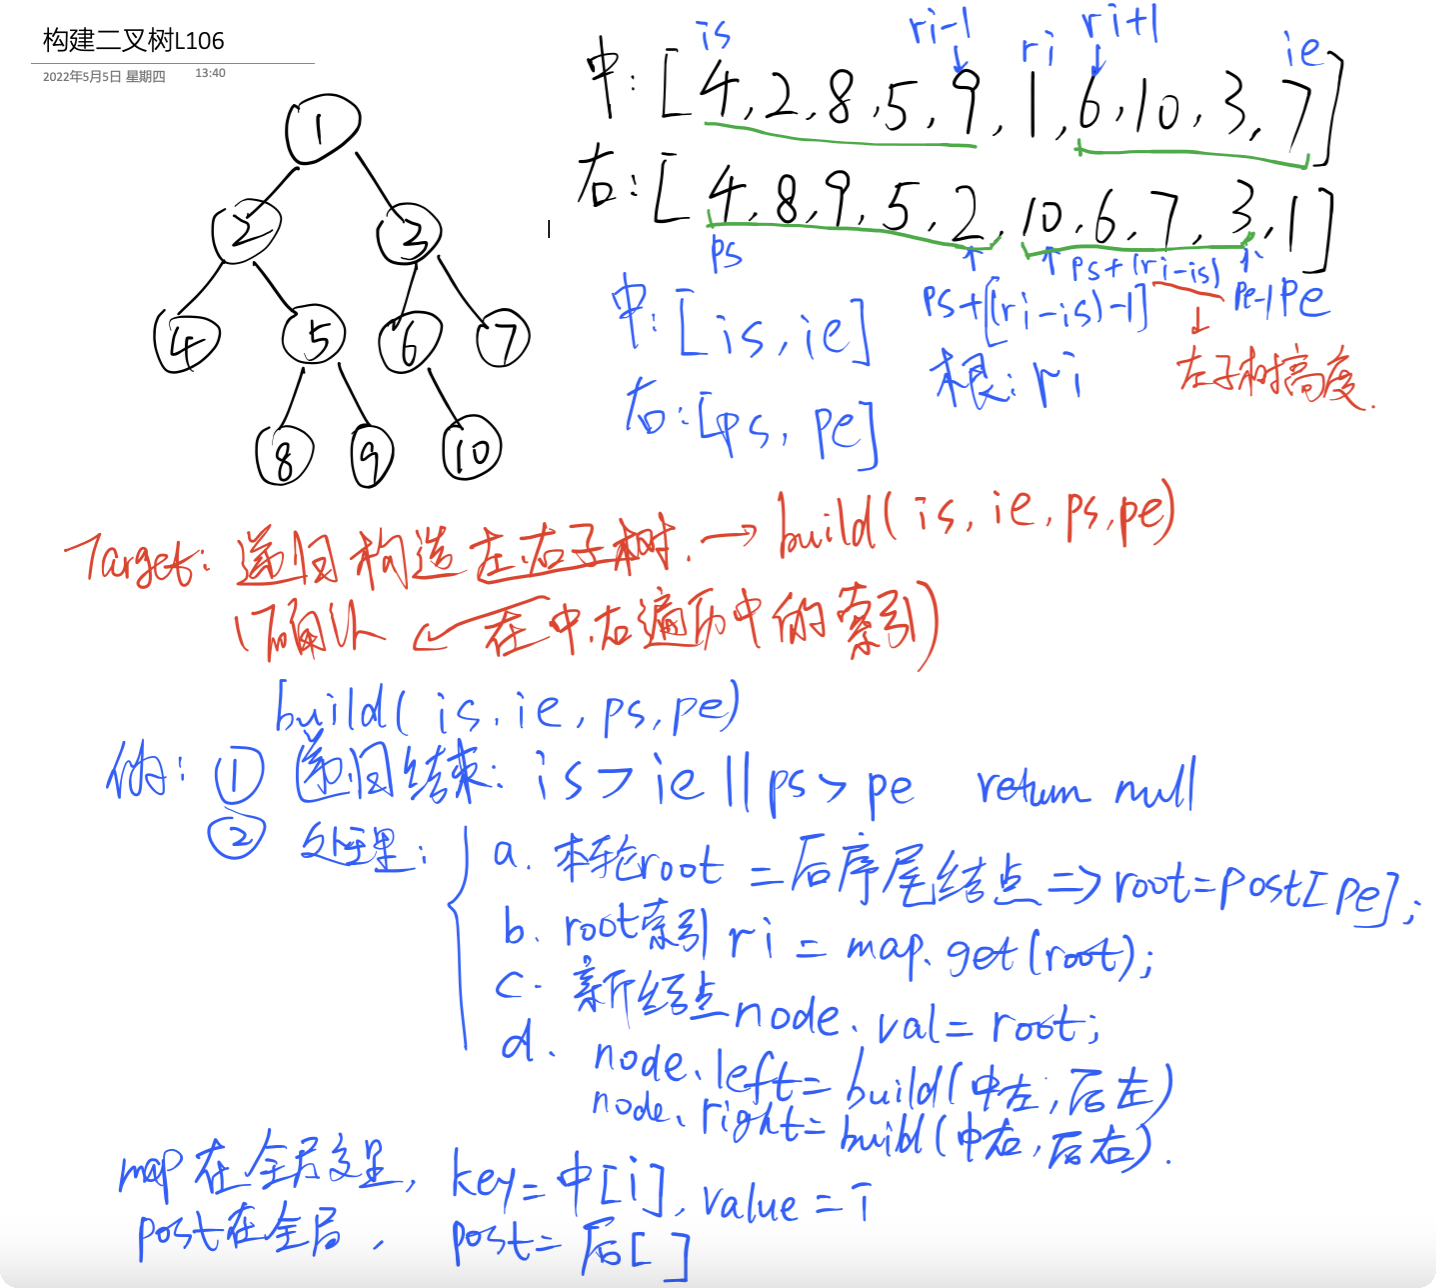 构建二叉树L106
2022年5月5日 星期四 13:40
is ri-1 ri ri+1 ie
中:[4,2,8,5,9,1,6,10,3,7]
右:[4,8,9,5,2,10,6,7,3,1]
ps ps+[(ri-is)-1] ps+(ri-is) pe-1 pe
中:[is,ie]
根:ri
左子树高度.
右:[ps,pe]
1
2 3
4 5 6 7
8 9 10
Target: 递归构造左右子树. → build(is,ie,ps,pe)
(确认 ← 在中.右遍历中的索引)
build(is.ie,ps,pe)
伪: ① 递归结束: is>ie||ps>pe return null
② 处理:
a. 本轮root=后序尾结点=>root=post[pe];
b. root索引ri=map.get(root);
c. 新结点node.val=root;
d. node.left=build(中左,后左)
node.right=build(中右,后右).
map在全局变量, key=中[i], value=i
post在全局, post=后[ ]